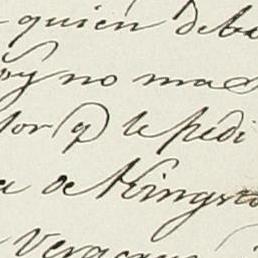 quién deb
oy no mas
dor q le pedi
a de Kingsto
Vergara